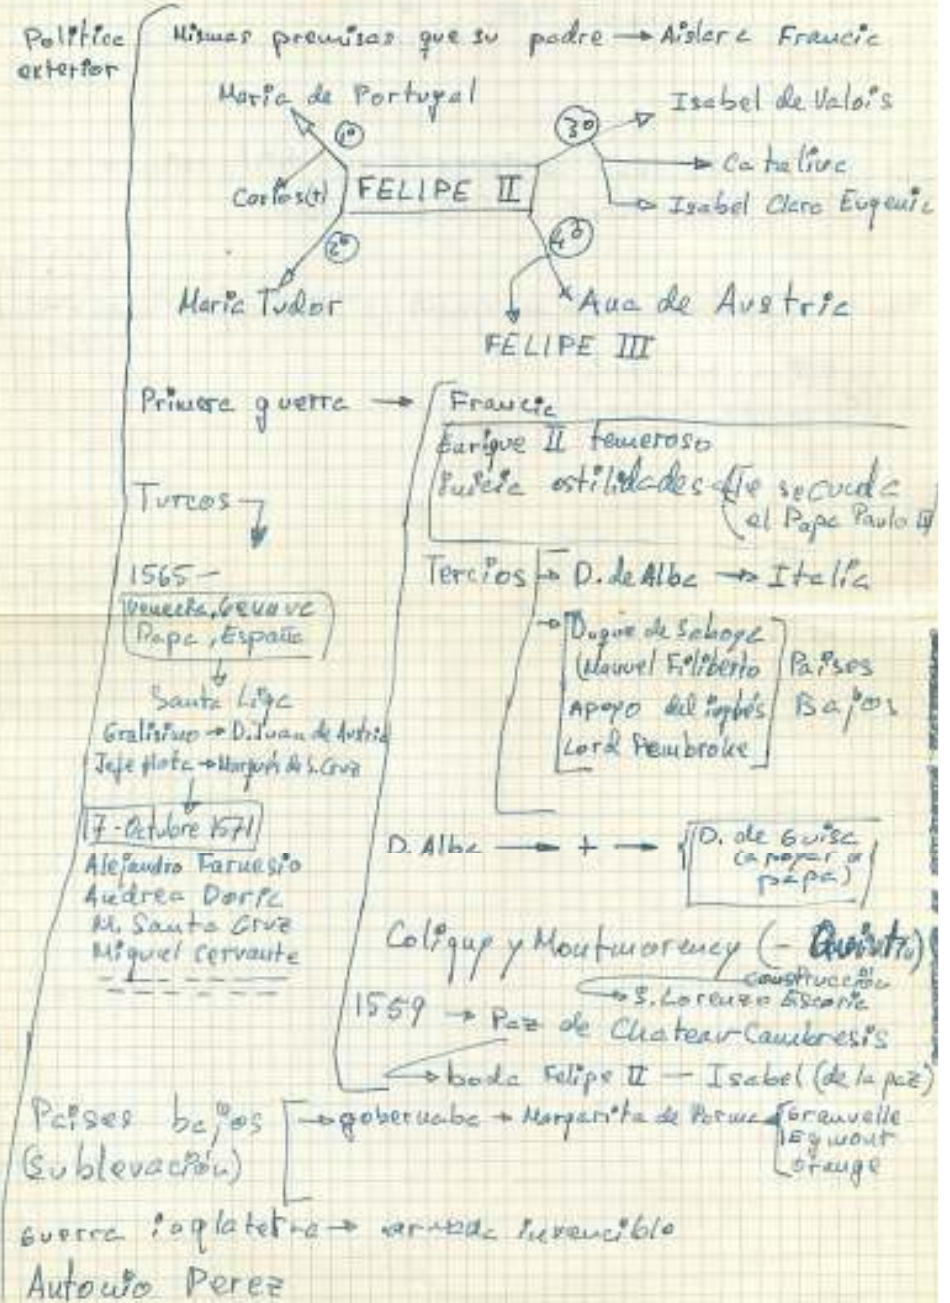 Politica exterior
Mismas premisas que su padre → Aislar a Francia
Maria de Portugal
1º
Carlos(†)
FELIPE II
2º
Maria Tudor
3º
Isabel de Valois
Catalina
Isabel Clara Eugenia
4º
Ana de Austria
FELIPE III
Primera guerra → Francia
Enrique II temeroso
inicia ostilidades
le secunda
el Papa Paulo IV
Turcos
1565 -
Venecia, Genova
Papa, España
Santa Liga
Gralisimo → D. Juan de Austria
Jefe flota → Marqués de S. Cruz
7 - Octubre 1571
Alejandro Farnesio
Andrea Doria
M. Santa Cruz
Miguel Cervante
Tercios → D. de Alba → Italia
→ Duque de Saboya
(Manuel Filiberto
Apoyo del inglés
Lord Pembroke
Paises
Bajos
D. Alba → + → D. de Guisa
(apoyar a
papa)
Coligny y Montmorency (- Quintin)
construcción
→ S. Lorenzo Escoria
1559 → Paz de Chateau Cambresis
→ boda Felipe II — Isabel (de la paz)
Paises bajos
(Sublevación)
→ gobernaba → Margarita de Parma
Granvelle
Egmont
Orange
Guerra inglaterra → armada invencible
Antonio Perez